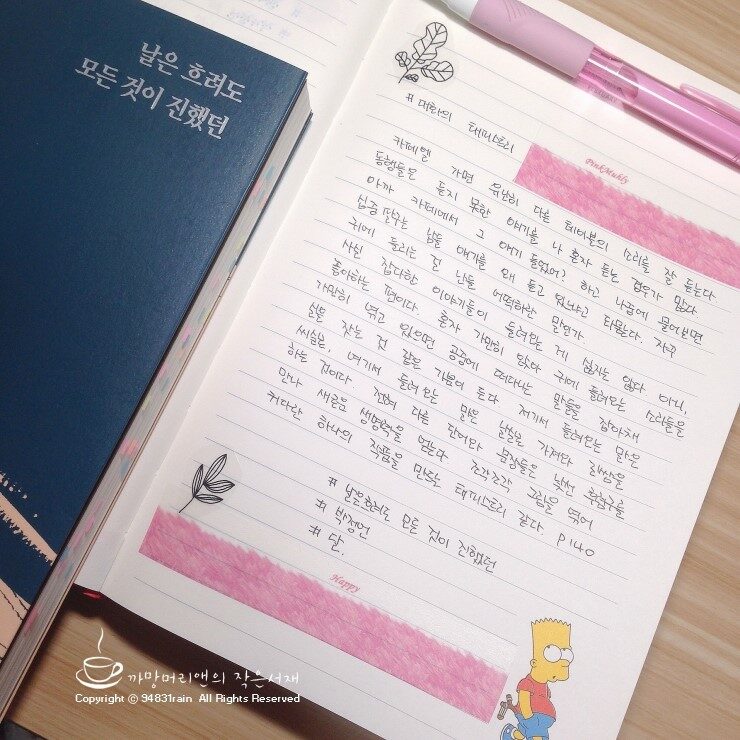 날은 흐려도
모든 것이 진했던
# 대화의 태피스트리
PinkMuhly
카페엘 가면 유난히 다른 테이블의 소리를 잘 듣는다.
동행들은 듣지 못한 얘기를 나 혼자 듣는 경우가 많다.
아까 카페에서 그 얘기 들었어? 하고 나중에 물어보면
십중팔구는 남들 얘기를 왜 듣고 있냐고 타박한다. 자꾸
귀에 들리는 걸 난들 어떡하란 말인가.
사실 잡다한 이야기들이 들려오는 게 싫지는 않다. 아니,
좋아하는 편이다. 혼자 가만히 앉아 귀에 들려오는 소리들을
가만히 엮고 있으면 공중에 떠다니는 말들을 잡아채
실을 잣는 것 같은 기분이 든다. 저기서 들려오는 말은
씨실로, 여기서 들려오는 말은 날실로 가져와 길쌈을
하는 것이다. 전혀 다른 단어와 문장들은 낯선 후렴구를
만나 새로운 생명력을 얻는다. 조각조각 그림을 엮어
커다란 하나의 작품을 만드는 태피스트리 같다. P140
# 날은흐려도 모든 것이 진했던
# 박정언
# 달.
Happy
까망머리앤의 작은서재
Copyright ⓒ 94831rain All Rights Reserved